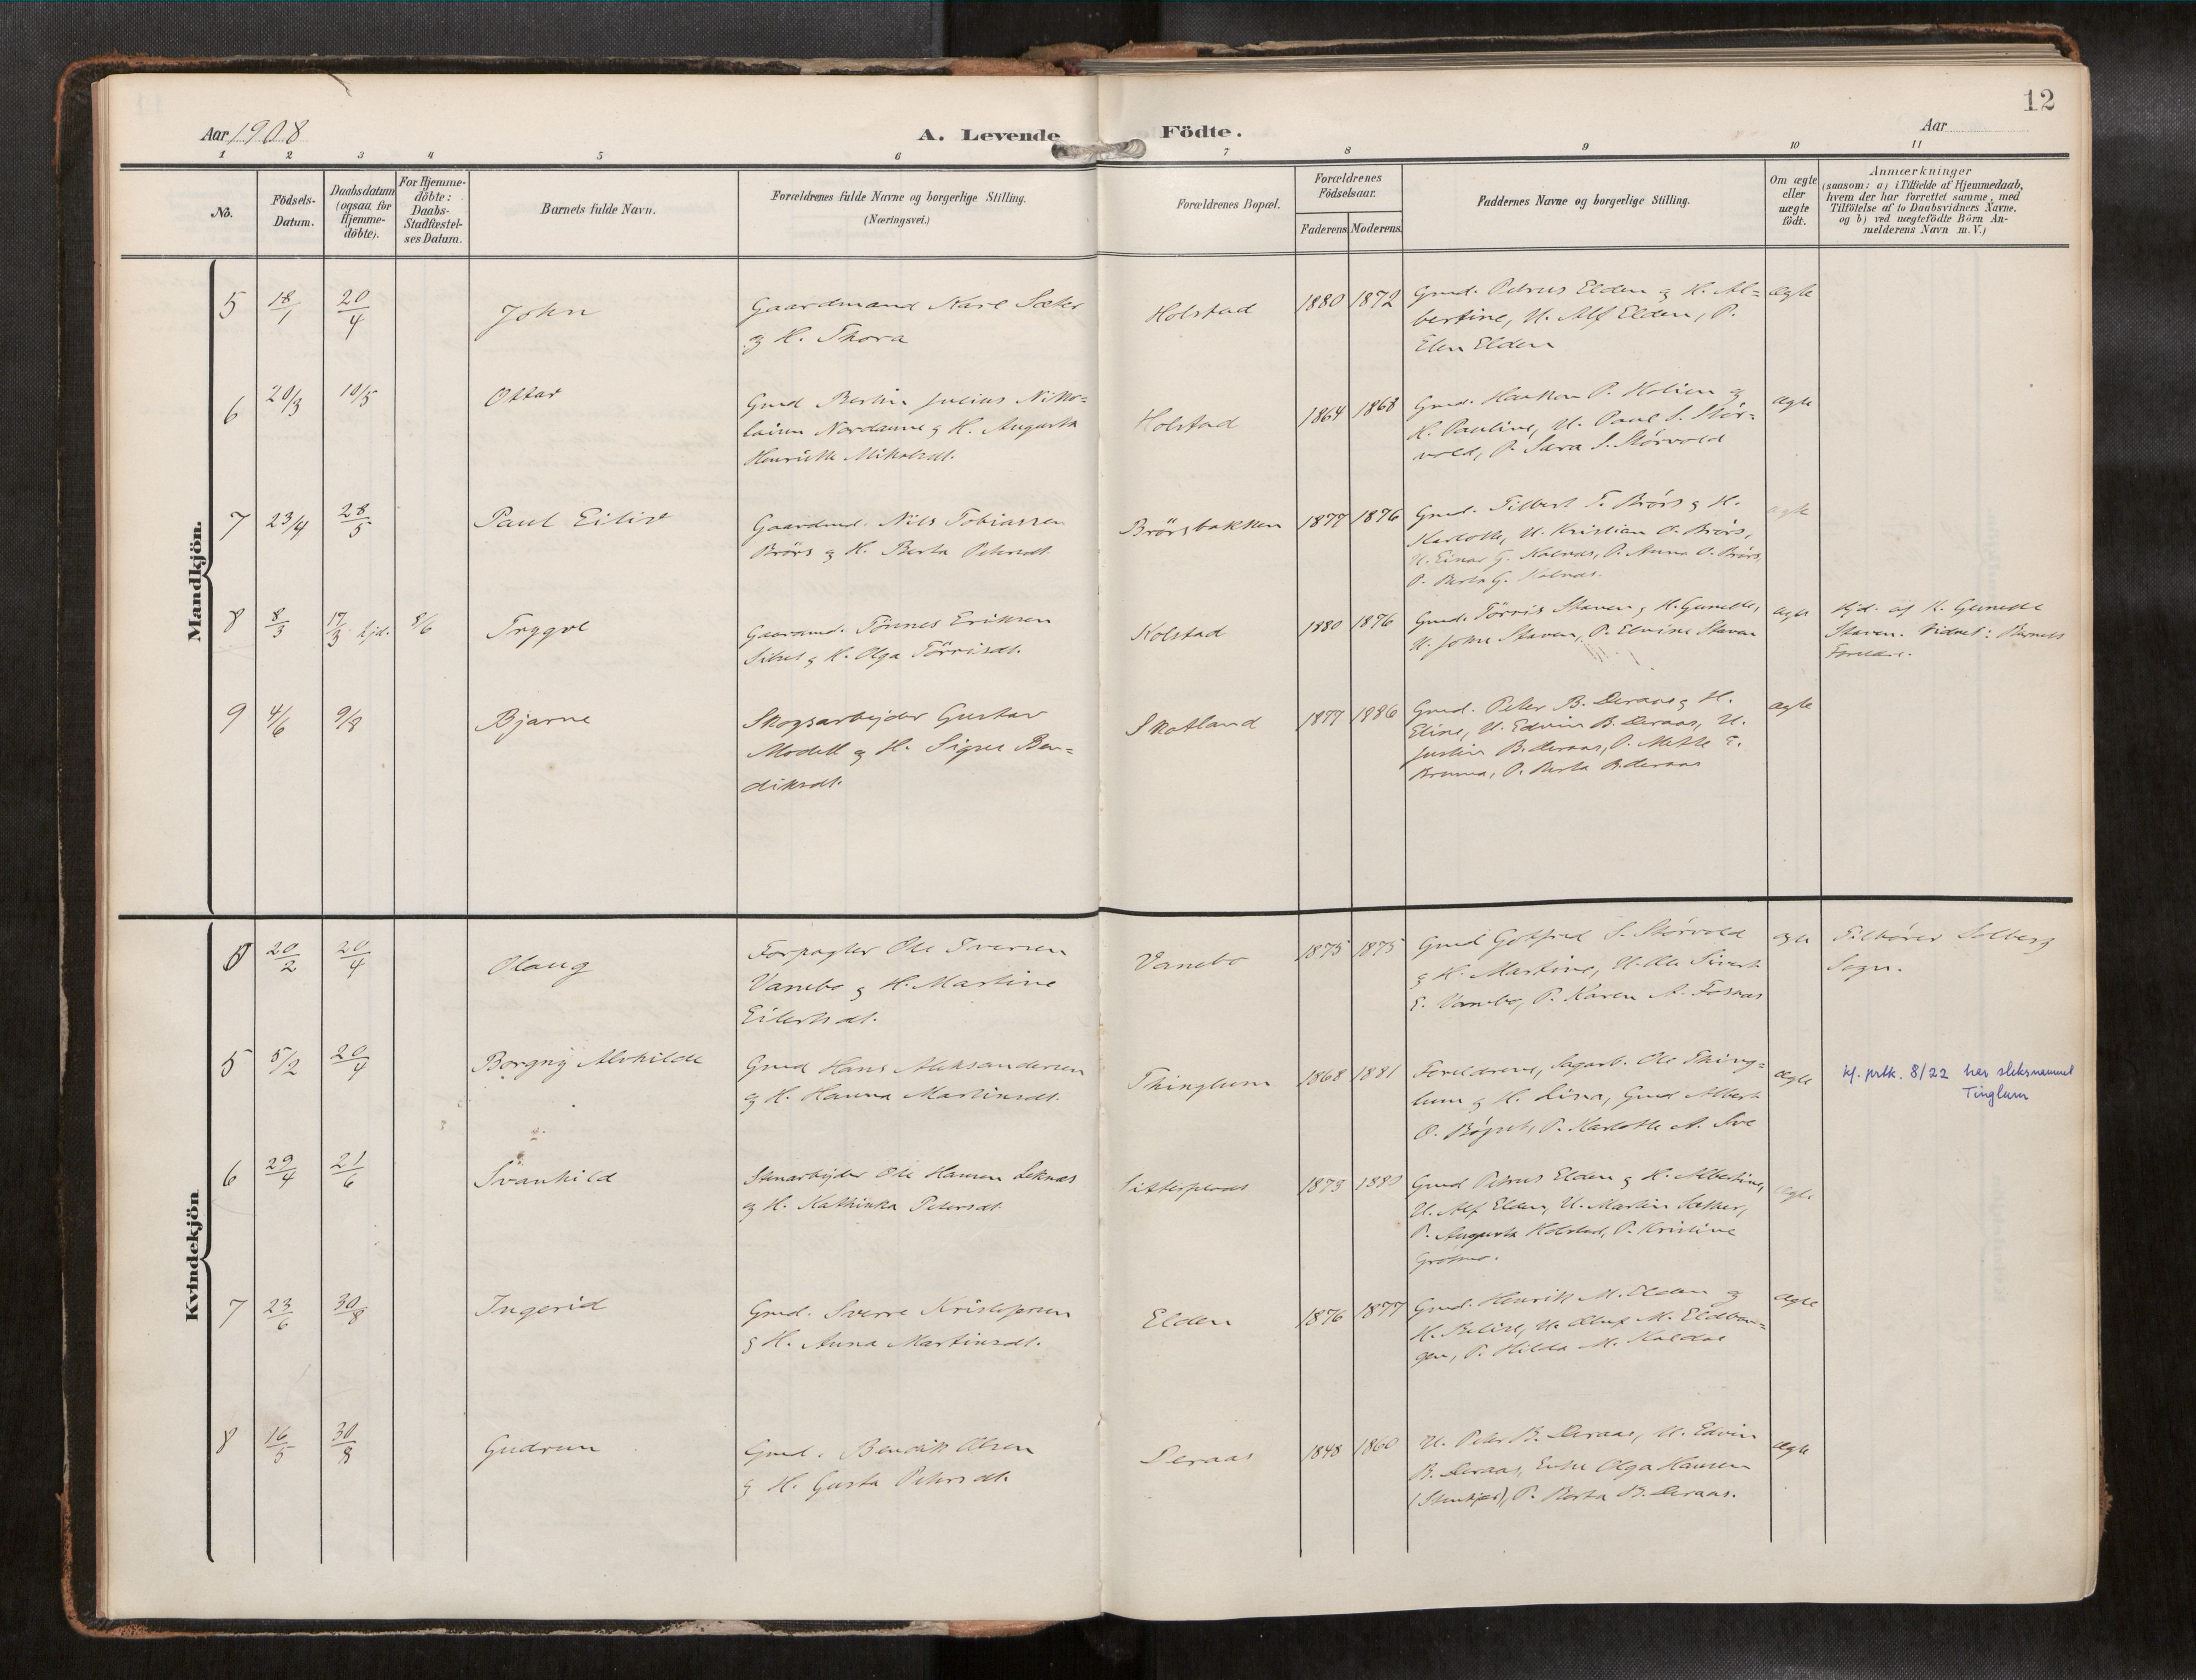 12
Aar 1908
A. Levende Födte.
Aar
1 2 3 4 5 6 7 8 9 10 11
No.
Födsels-
Datum.
Daabsdatum
(ogsaa for
Hjemme-
döbte).
For Hjemme-
döbte:
Daabs-
Stadfæstel-
ses Datum.
Barnets fulde Navn.
Forældrenes fulde Navne og borgerlige Stilling.
(Næringsvei.)
Forældrenes Bopæl.
Forældrenes
Födselsaar.
Faderens. Moderens.
Faddernes Navne og borgerlige Stilling.
Om ægte
eller
uægte
födt.
Anmærkninger
(saasom: a) i Tilfælde af Hjemmedaab,
hvem der har forrettet samme, med
Tilföielse af to Daabsvidners Navne,
og b) ved uægtefödte Börn An-
melderens Navn m. V.)
Mandkjön.
5 18/1 20/4 John
Gaardmand Karl Sæter
og H. Thora
Holstad 1880 1872
Gmd. Petrus Elden og H. Al=
bertine, U. Alf Elden, P.
Elen Elden
ægte
6 20/3 10/5 Ottar
Gmd Bertin Julius Niko=
laisen Nordaune og H. Augusta
Henriette Mikalsdt.
Holstad 1864 1868
Gmd. Haakon P. Holien og
H. Pauline, U. Paul S. Stør=
vold, P. Sara S. Størvold
ægte
7 23/4 28/5 Paul Eiliv
Gaardmd. Nils Tobiassen
Brørs og H. Berta Petersdt.
Brørsbakken 1877 1876
Gmd. Tilbert T. Brørs og H.
Karlotte, U. Kristian O. Brørs,
U. Einar G. Kolnas, P. Anna O. Brørs,
P. Berta G. Kolnas.
ægte
8 8/3 17/3 hjd. 8/6 Trygve
Gaardmd. Tönnes Eriksen
Sibet og H. Olga Törrisdt.
Kolstad 1880 1876
Gmd. Törris Staven og H. Gunelle,
U. John Staven, P. Elvine Staven
ægte
Hjd. af K. Gunelle
Staven. Vidner: Barnets
Foreldre.
9 4/6 9/8 Bjarne
Skogsarbeider Gustav
Modell og H. Signe Ben=
diksdt.
Skotland 1877 1886
Gmd. Peter B. Deraas og H.
Eline, U. Edvin B. Deraas, U.
Justin B. Deraas, P. Mette
P. Berta B. Deraas
ægte
Kvindekjön
20/2 20/4 Olaug
Forpagter Ole Iversen
Vanebo og H. Martine
Eilertsdt.
Vanebo 1875 1875
Gmd Gotfred S. Størvold
og H. Martine, U. Ole Sivert
E. Vanebo, P. Karen A. Fosnas
ægte
Tilhører Solberg
Sogn.
5 5/2 20/4 Borgny Alvhilde
Gmd Hans Aleksandersen
og H. Hanna Martinsdt.
Thinglum 1868 1881
Foreldrene, Sagarb. Ole Thing=
lum og H. Lina, Gmd Albert
O. Bögset, P. Karlotte A. Sve
ægte
kf. prtk. 8/22 her slektsnavnet
Tinglum
6 29/4 21/6 Svanhild
Stenarbeider Ole Hansen Leknes
og H. Kathinka Petersdt.
1873 1880
Gmd Petrus Elden og H. Albertine,
U. Alf Elden, U. Martin Sæther,
P. Augusta Holstad, P. Kristine
ægte
7 23/6 30/8 Ingerid
Gmd. Sverre Kristofersen
og H. Anna Martinsdt.
Elden 1876 1877
Gmd. Henrik M. Elden og
H. Beline, U. Oluf M. Eldbon=
gen, P. Hilda M. Kaldal
ægte
8 16/5 30/8 Gudrun
Gmd. Bendik Olsen
og H. Gusta Petersdt.
Deraas 1848 1860
U. Peter B. Deraas, U. Edvin
B. Deraas, Enke Olga Hansen
P. Berta B. Deraas.
ægte